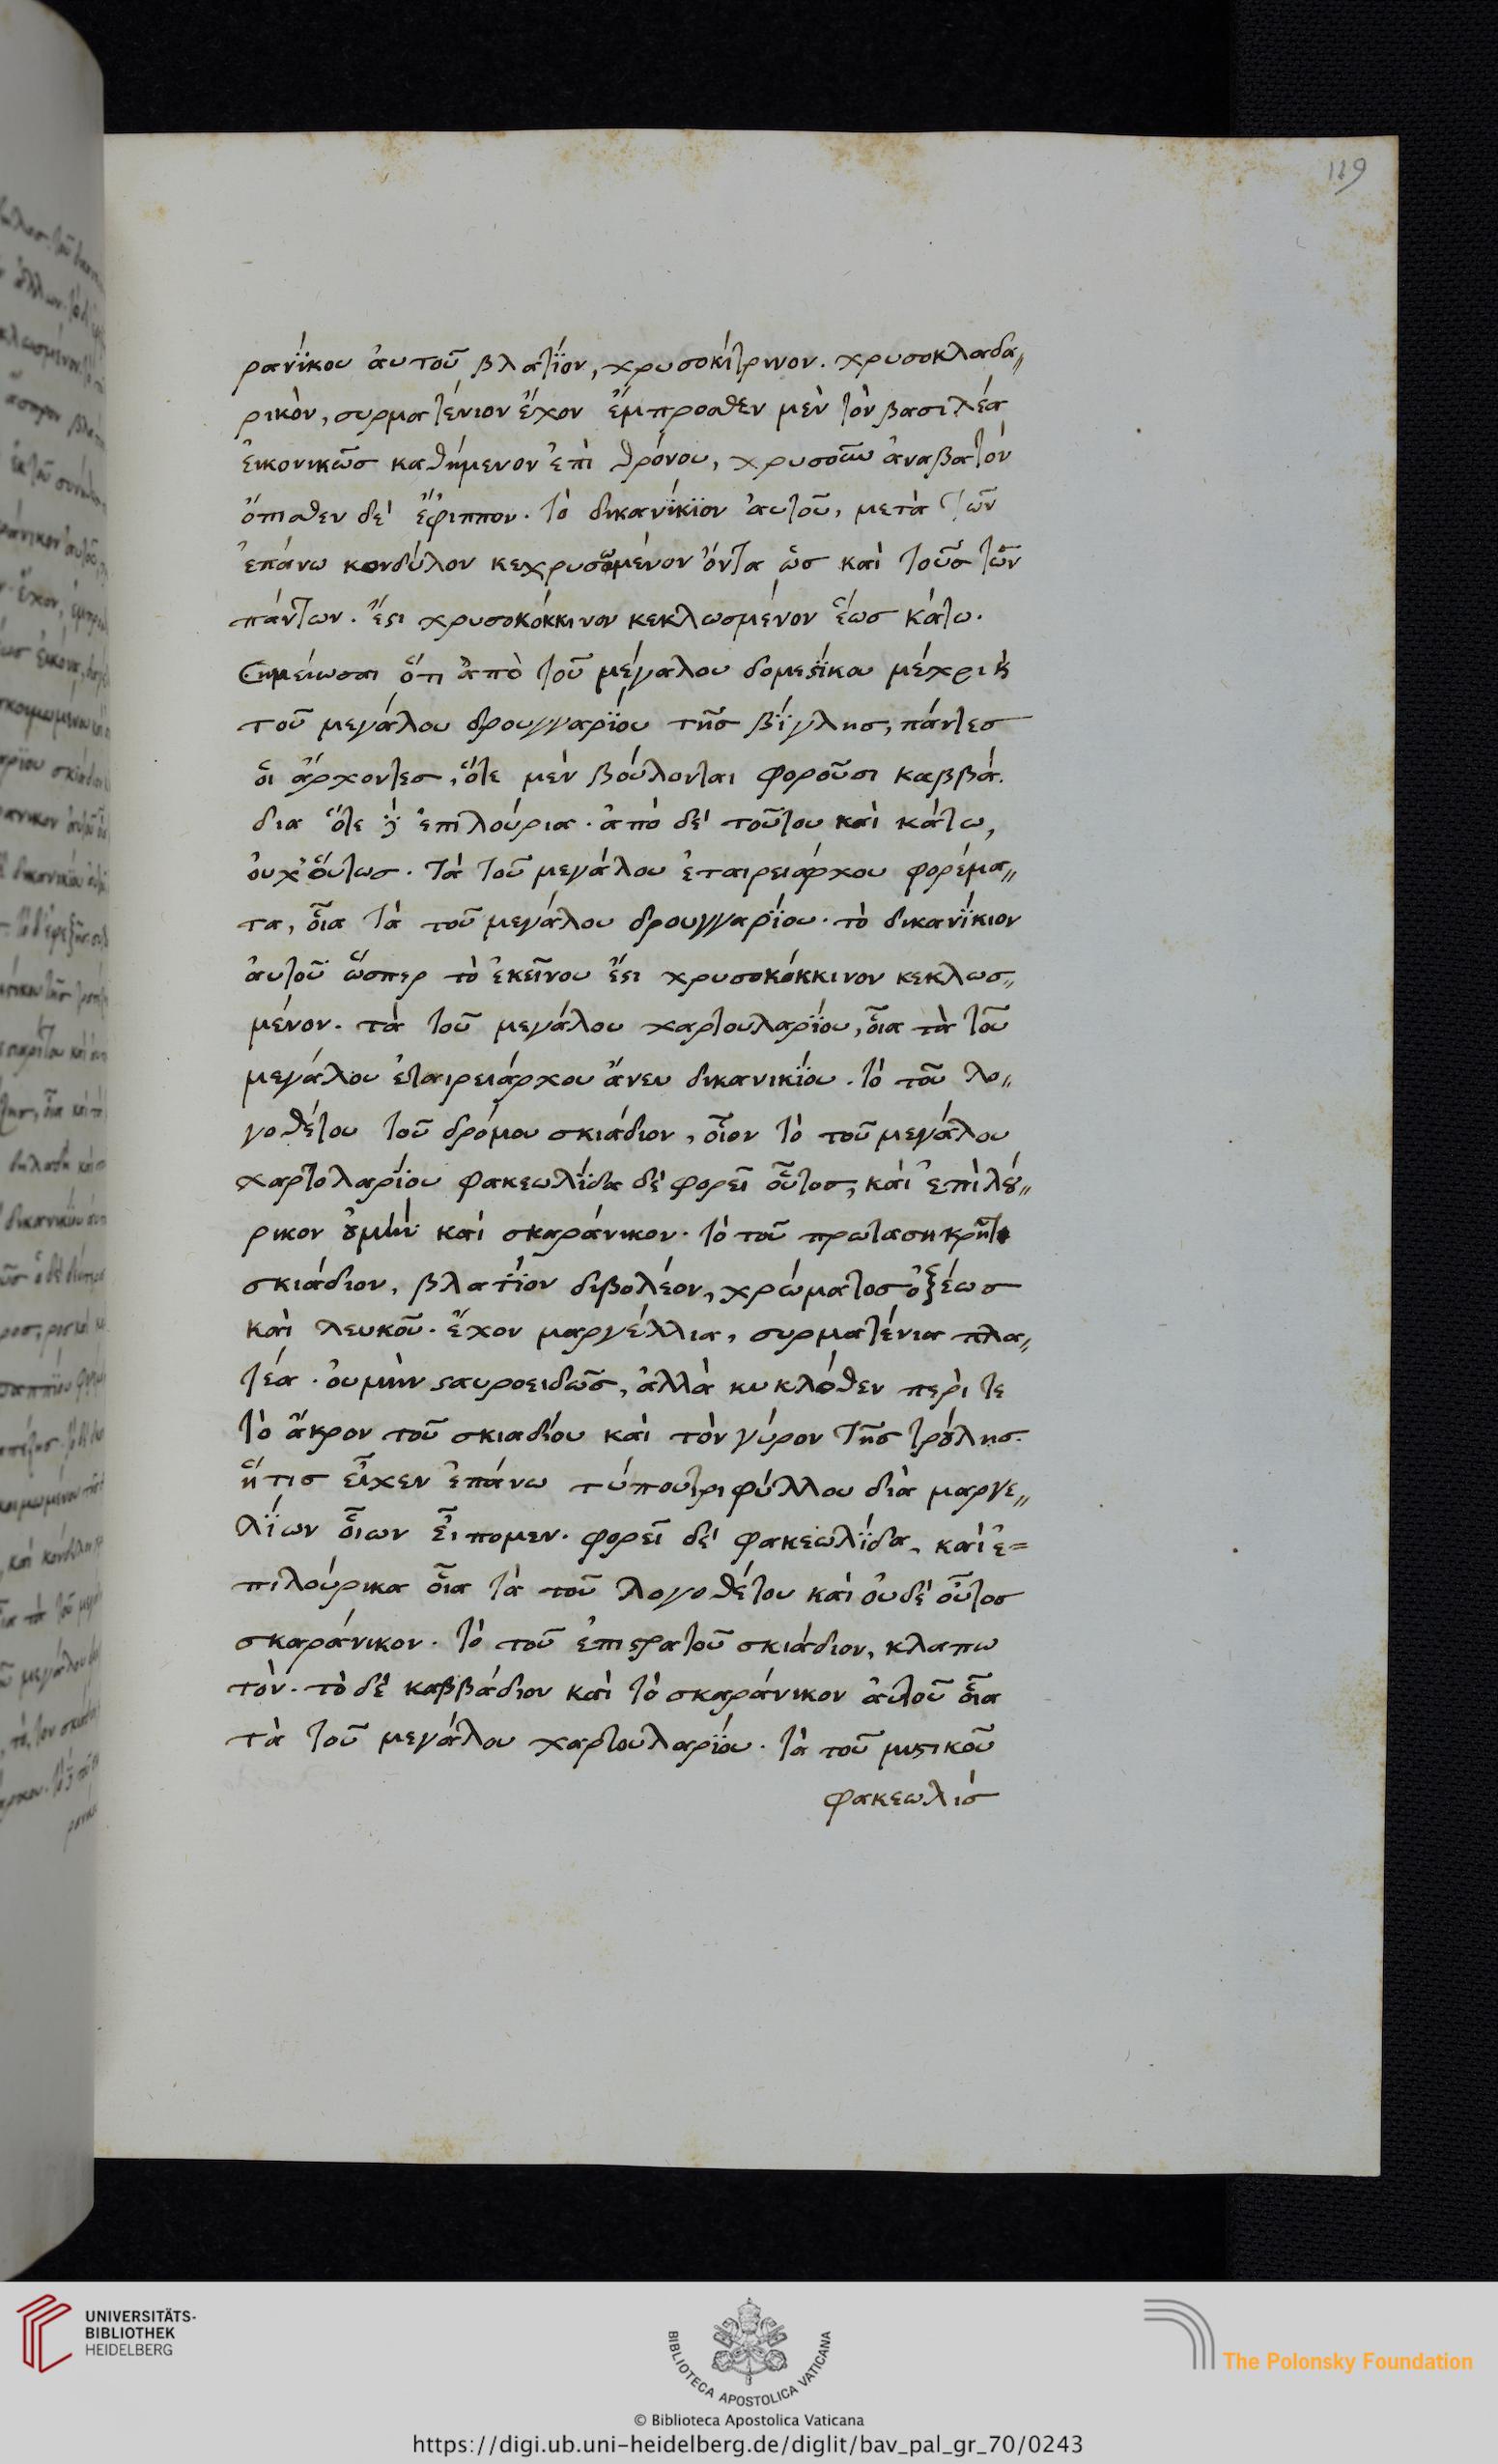 119
ρανίκου ἀυτοῦ βλατίον, χρυσοκίτρινον. χρυσοκλαδα〃
ρικὸν, συρματένιον ἔχον ἔμπροσθεν μὲν τὸν βασιλέα
ἐικονικῶσ καθήμενον ἐπὶ θρόνου, ἀναβατόν
ὄπισθεν δὲ ἔφιππον. τὸ δικανίκϊον ἀυτοῦ, μετὰ τῶν
ἐπάνω κονδύλον κεχρυσωμένον ὄντα ὡσ καὶ τοῦσ τῶν
πάντων. ἔϛι χρυσοκόκκινον κεκλωσμένον ἕωσ κάτω.
Σημείωσαι ὅτι ἀπὸ τοῦ μεγάλου δομεϛίκου μέχρι κ̀
τοῦ μεγάλου δρουγγαρϊου τῆσ βίγλησ, πάντεσ
ὁι ἄρχοντεσ, ὅτε μὲν βούλονται φοροῦσι καββά.
δια ὅτε δ̀ ἐπιλούρια. ἀπὸ δὲ τούτου καὶ κάτω,
ὀυχ ὅυτωσ. τὰ τοῦ μεγάλου ἑταιρειάρχου φορέμα〃
τα, οἷα τὰ τοῦ μεγάλου δρουγγαρϊου. τὸ δικανίκιον
ἀυτοῦ ὥσπερ τὸ ἐκεῖνου ἔϛι χρυσοκόκκινον κεκλωσ〃
μένον. τὰ τοῦ μεγάλου χαρτουλαρϊου, οἷα τὰ τοῦ
μεγάλου ἑταιρειάρχου ἄνευ δικανικϊου. τὸ τοῦ λο〃
γοθέτου τοῦ δρόμου σκιάδιον, οἷον τὸ τοῦ μεγάλου
χαρτολαρϊου φακεωλΐδα δὲ φορεῖ οὗτοσ, καὶ ἐπὶλȣ́〃
ρικον ȣ̓μὴν καὶ σκαράνικον. τὸ τοῦ πρωτασηκρῆτ
σκιάδιον, βλατΐον διβολέον, χρώματοσ ὀξέωσ
καὶ λευκοῦ. ἔχον μαργέλλια, συρματένια πλα〃
τέα. ὀυμὴν ϛαυροειδῶσ, ἀλλὰ κυκλόθεν περὶ τε
τὸ ἄκρον τοῦ σκιαδίου καὶ τὸν γύρον τῆσ τρούλησ.
ἥτισ εἶχεν ἐπάνω τύπουτριφύλλου διὰ μαργε〃
λΐων οἵων εἴπομεν. φορεῖ δὲ φακεωλΐδα, καὶ ἐ=
πιλούρικα οἷα τὰ τοῦ λογοθέτου καὶ ὀυδὲ οὗτοσ
σκαράνικον. τὸ τοῦ ἐπιϛρατοῦ σκιάδιον, κλαπω
τὸν. τὸ δὲ καββάδιον καὶ τὸ σκαράνικον ἀυτοῦ οἷα
τὰ τοῦ μεγάλου χαρτουλαρϊου. τὰ τοῦ μυϛικοῦ
φακεωλὶσ
UNIVERSITÄTS-
BIBLIOTHEK
HEIDELBERG
BIBLIOTECA APOSTOLICA VATICANA
The Polonsky Foundation
© Biblioteca Apostolica Vaticana
https://digi.ub.uni-heidelberg.de/diglit/bav_pal_gr_70/0243